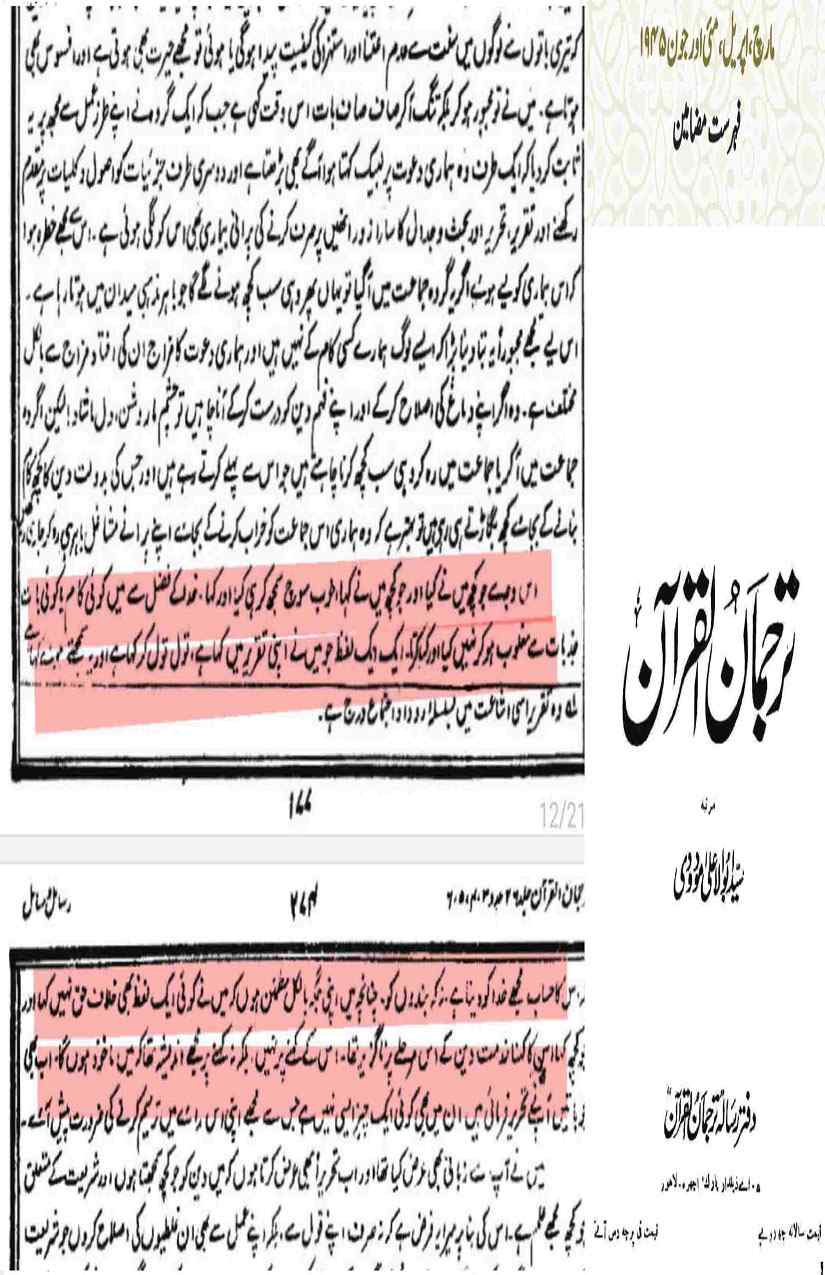 کو تیری باتوں سے لوگوں میں سخت عدم اعتنا اور استہزا کی کیفیت پیدا ہوگی یا ہوئی تو مجھے حیرت بھی ہوتی ہے اور افسوس بھی
ہوتا ہے۔ میں نے تو مجبور ہو کر بلکہ تنگ آکر صاف صاف بات اس وقت کہی ہے جب کہ ایک گروہ نے اپنے طرز عمل سے مجھ پر یہ
ثابت کر دیا کہ ایک طرف وہ ہماری دعوت پر لبیک کہتا ہوا آگے بھی بڑھتا ہے اور دوسری طرف جزئیات کو اصول و کلیات پر مقدم
رکھنے اور تقریر، تحریر اور بحث و جدال کا سارا زور انھیں پر صرف کرنے کی پرانی بیماری بھی اس کو لگی ہوئی ہے۔ اس سے مجھے خطرہ ہوا
کہ اس بیماری کو لیے ہوئے اگر یہ گروہ جماعت میں آگیا تو یہاں پھر وہی سب کچھ ہونے لگے گا جو باہر مذہبی میدان میں ہوتا رہا ہے۔
اس لیے مجھے مجبوراً یہ بتا دینا پڑا کہ ایسے لوگ ہمارے کسی کام کے نہیں ہیں اور ہماری دعوت کا مزاج ان کی افتاد مزاج سے بالکل
مختلف ہے۔ وہ اگر اپنے دماغ کی اصلاح کرکے اور اپنے فہم دین کو درست کرکے آنا چاہیں تو چشم ما روشن، دل ما شاد! لیکن اگر وہ
جماعت میں آکر یا جماعت میں رہ کر وہی سب کچھ کرنا چاہتے ہیں جو اس سے پہلے کرتے رہے ہیں اور جس کی بدولت دین کا کچھ کام
بنانے کے بجائے کچھ بگاڑتے ہی رہے ہیں تو بہتر ہے کہ وہ ہماری اس جماعت کو خراب کرنے کے بجائے اپنے پرانے مشاغل باہر ہی رہ کر جاری
اس وجہ سے جو کچھ میں نے کیا اور جو کچھ میں نے کہا، خوب سوچ سمجھ کر ہی کیا اور کہا۔ خدا کے فضل سے میں کوئی کام یا کوئی بات
جذبات سے مغلوب ہو کر نہیں کیا اور کہا کرتا۔ ایک ایک لفظ جو میں نے اپنی تقریر میں کہا ہے، تول تول کر کہا ہے اور یہ سمجھتے ہوئے کہا ہے
۱ہ وہ تقریر اسی اشاعت میں بسلسلہ روداد اجتماع درج ہے۔
۱۷۷
12/21
ترجمان القرآن جلد ۲۶ عدد ۳، ۴، ۵، ۶
رسائل و مسائل
اس کا حساب مجھے خدا کو دینا ہے نہ کہ بندوں کو۔ چنانچہ میں اپنی جگہ بالکل مطمئن ہوں کہ میں نے کوئی ایک لفظ بھی خلاف حق نہیں کہا اور
جو کچھ کہا اس کا کہنا خدمت دین کے اس مرحلے پر ناگزیر تھا۔ اس کے کہنے پر نہیں بلکہ نہ کہنے پر مجھے اندیشہ تھا کہ میں ماخوذ ہوں گا۔ اب بھی
جو باتیں آپ نے تحریر فرمائی ہیں ان میں بھی کوئی ایک چیز ایسی نہیں ہے جس سے مجھے اپنی اس رائے میں ترمیم کرنے کی ضرورت پیش آئے۔
میں نے آپ سے زبانی بھی عرض کیا تھا اور اب تحریراً بھی عرض کرتا ہوں کہ میں دین کو جو کچھ سمجھتا ہوں اور شریعت کے متعلق
جو کچھ مجھے علم ہے۔ اس کی بنا پر میرا یہ فرض ہے کہ نہ صرف اپنے قول سے، بلکہ اپنے عمل سے بھی ان غلطیوں کی اصلاح کروں جو شریعت
مارچ، اپریل، مئی اور جون ۱۹۴۵
فہرست مضامین
ترجمان القرآن
مرتبہ
سید ابوالاعلیٰ مودودی
دفتر رسالہ ترجمان القرآن
۵۔اے ذیلدار پارک اچھرہ۔لاہور
قیمت سالانہ چھ روپے
قیمت فی پرچہ دس آنے